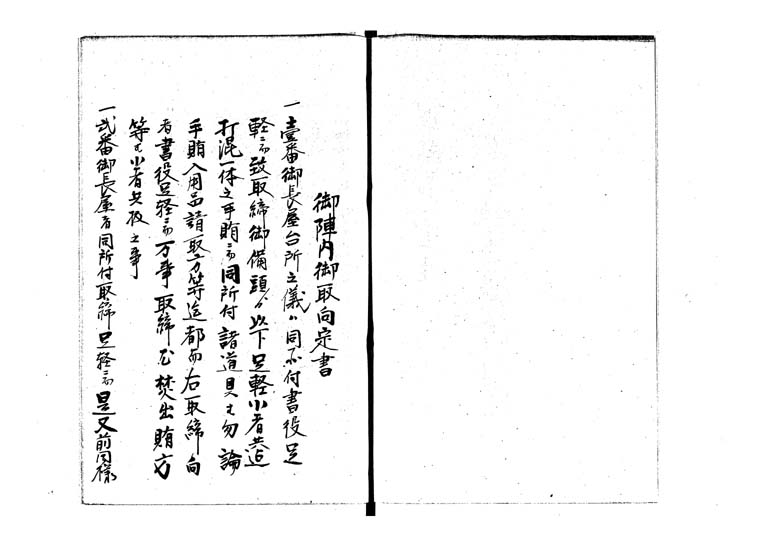 御陣内御取向定書
一 壹番御長屋台所之儀ハ同所付書役足
軽ニ而致取締御備頭ゟ以下足軽小者共迠
打混一体之手賄ニ而同所付諸道具は勿論
手賄入用品請取方等迠都而右取締向
者書役足軽ニ而万事取締尤焚出賄方
等は小者 之事
一 弐番御長屋者同所付取締足軽ニ而是又前同様